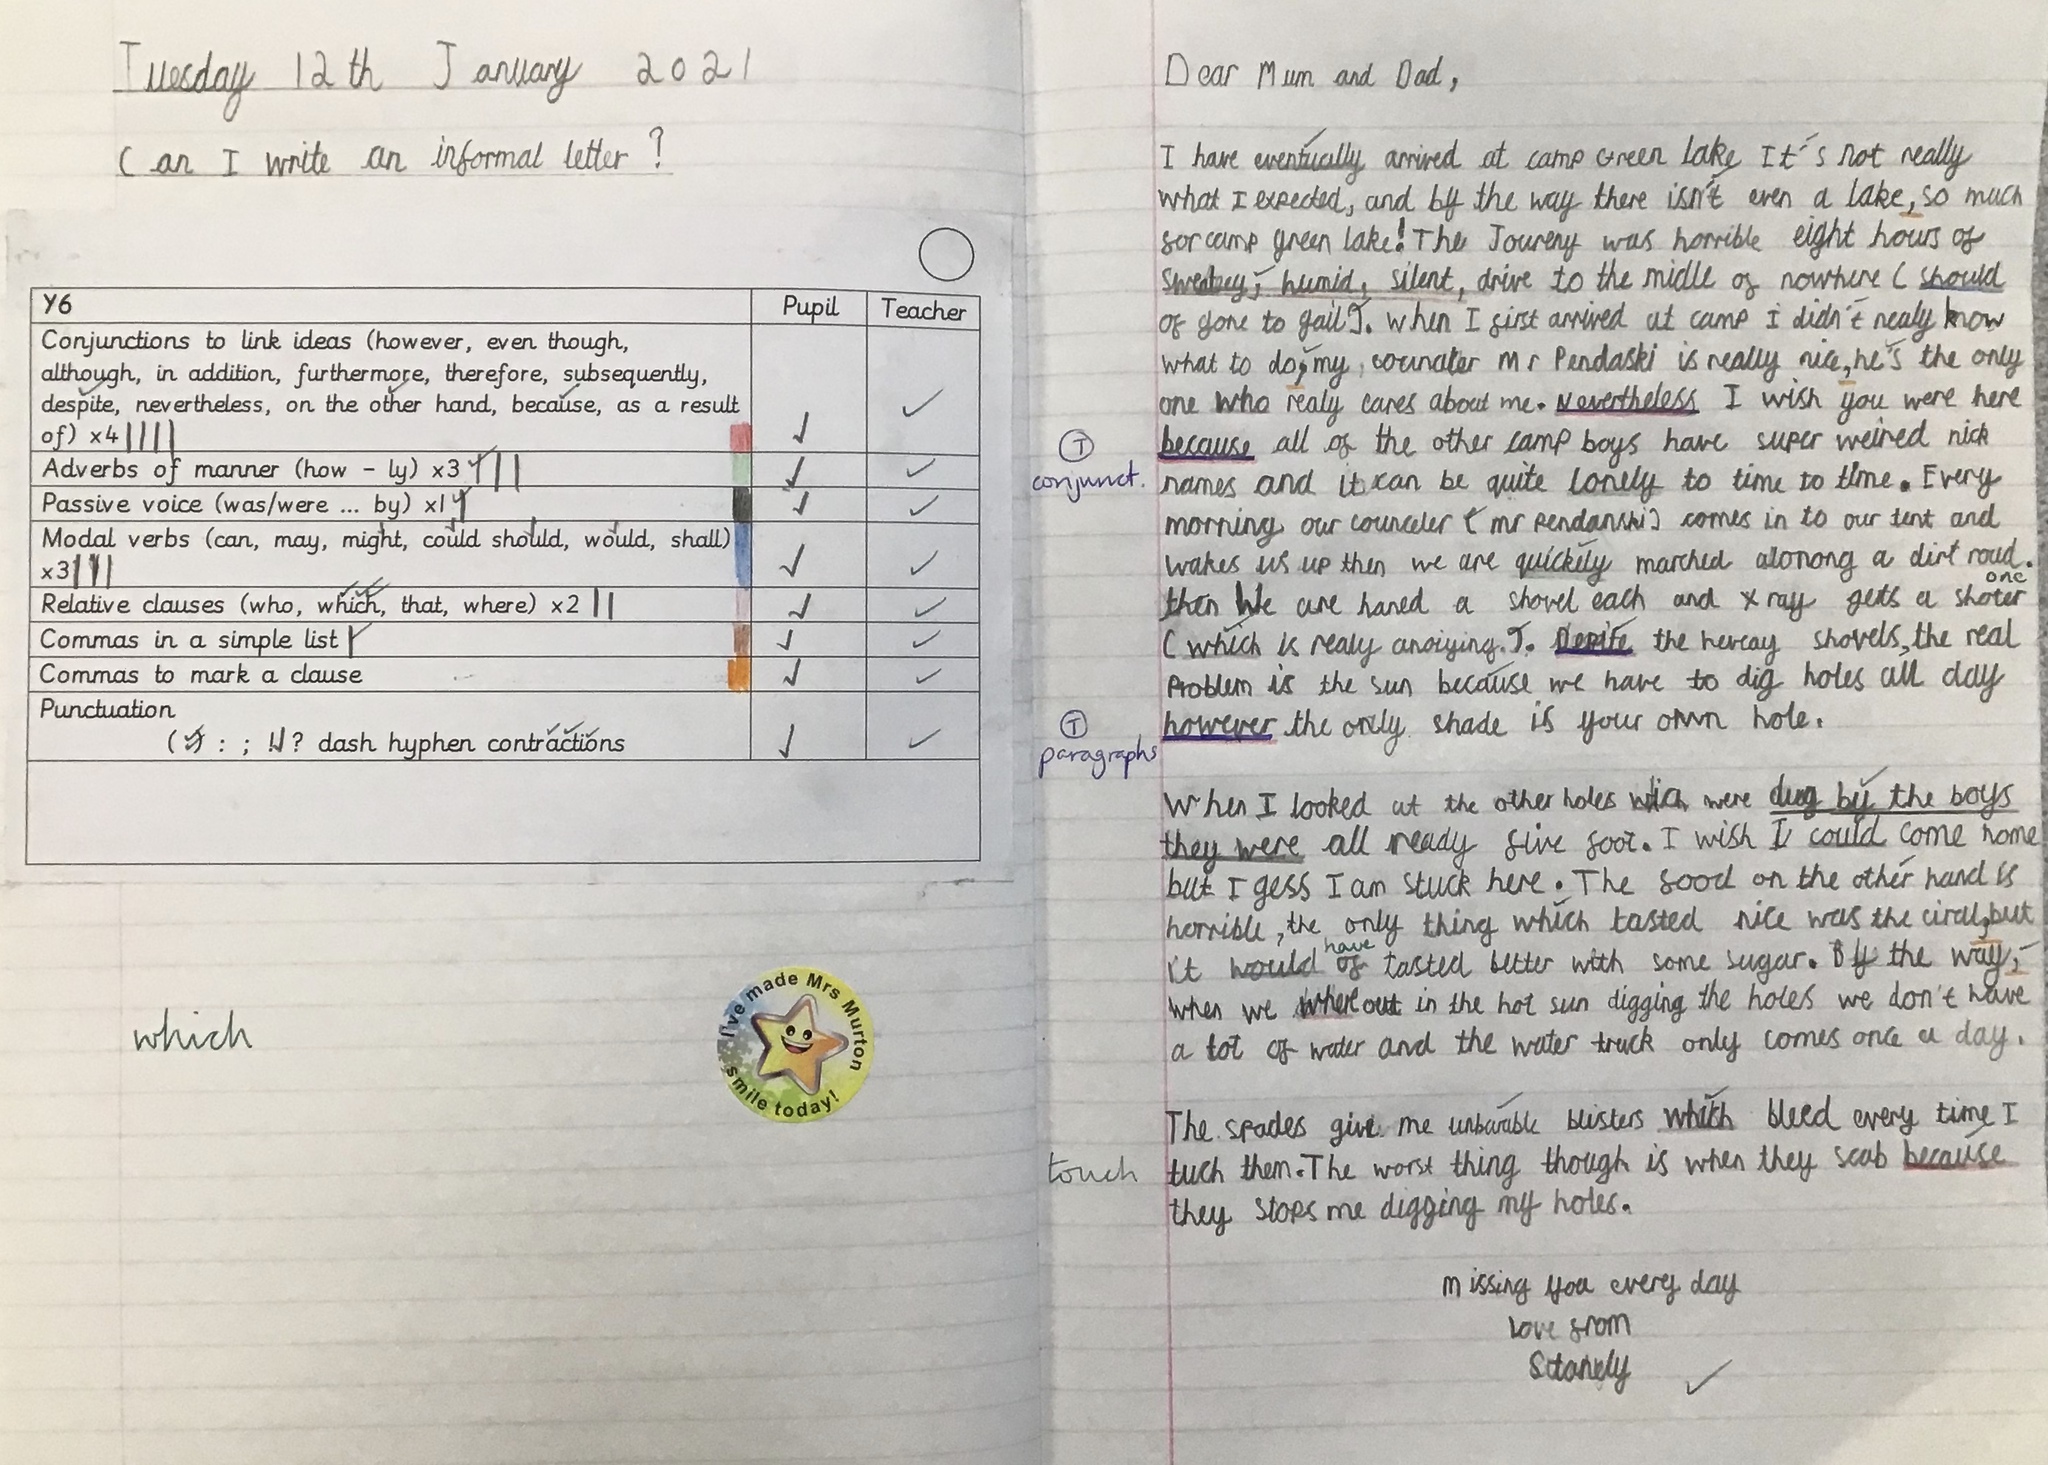 Tuesday 12th January 2021
Can I write an informal letter?
Y6 Pupil Teacher
Conjunctions to link ideas (however, even though,
although, in addition, furthermore, therefore, subsequently,
despite, nevertheless, on the other hand, because, as a result
of) x4
Adverbs of manner (how - ly) x3
Passive voice (was/were ... by) x1
Modal verbs (can, may, might, could should, would, shall)
x3
Relative clauses (who, which, that, where) x2
Commas in a simple list
Commas to mark a clause
Punctuation
( ) : ; ! ? dash hyphen contractions
which
I've made Mrs Murton
smile today!
Dear Mum and Dad,
I have eventually arrived at camp Green lake It's not really
what I expected, and by the way there isn't even a lake, so much
for camp green lake! The Joureny was horrible eight hours of
humid, silent, drive to the midle of nowhere (should
of gone to jail). When I first arrived at camp I didn't realy know
what to do, my counceler Mr Pendaski is really nice, he's the only
one who realy cares about me. Nevertheless I wish you were here
because all of the other camp boys have super weired nick
names and it can be quite lonely to time to time. Every
morning our counceler (mr Pendanski) comes in to our tent and
wakes us up then we are quickily marched alonong a dirt road.
then We are haned a shovel each and X ray gets a shoter one
(which is realy anoiying.). Despite the hevay shovels, the real
Problem is the sun because we have to dig holes all day
however the only shade is your own hole.
T
conjunct.
T
paragraphs
When I looked at the other holes wich were dug by the boys
they were all ready five foot. I wish I could come home
but I gess I am stuck here. The food on the other hand is
horrible, the only thing which tasted nice was the ciral, but
it would of have tasted better with some sugar. By the way,
when we out in the hot sun digging the holes we don't have
a lot of water and the water truck only comes once a day.
The spades give me unbarable blisters which bleed every time I
touch
tuch them. The worst thing though is when they scab because
they stops me digging my holes.
Missing you every day
Love from
Stanely